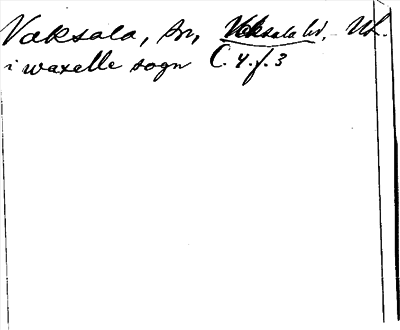 Vaksala, sn, Vaksala hd, Ul.
i waxelle sogn C. 4. f. 3